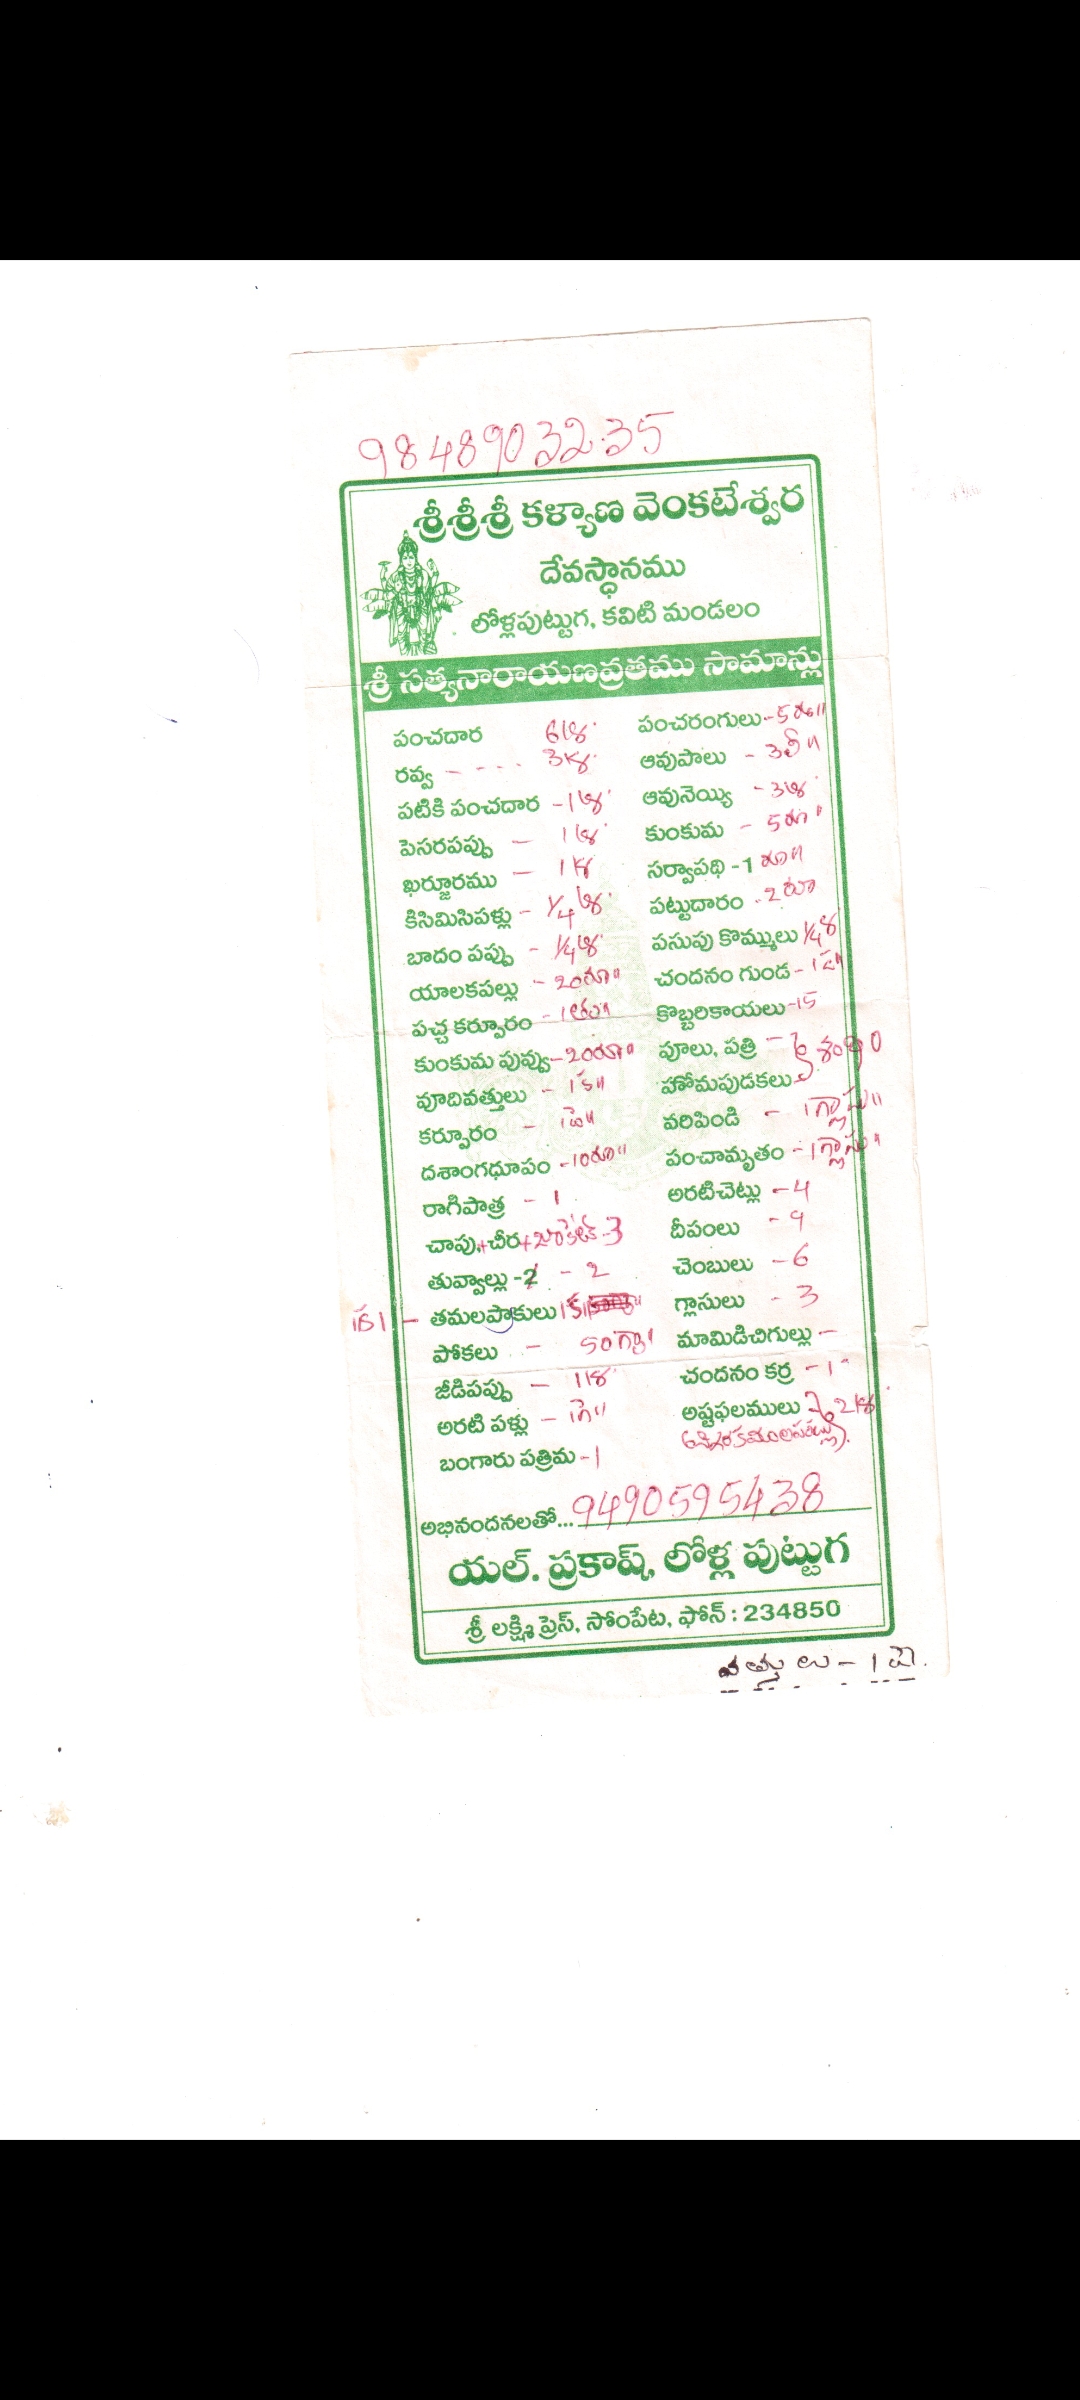 9848903235
శ్రీశ్రీశ్రీ కళ్యాణ వెంకటేశ్వర
దేవస్థానము
లోళ్లపుట్టుగ, కవిటి మండలం
శ్రీ సత్యనారాయణవ్రతము సామాన్లు
పంచదార
రవ్వ - - - -
పటికి పంచదార - 1
పెసరపప్పు - 1
ఖర్జూరము - 1
కిసిమిసిపళ్లు - 1/4
బాదం పప్పు - 1/4
యాలకపల్లు - 20రూ॥
పచ్చ కర్పూరం - 1
కుంకుమ పువ్వు - 20రూ॥
వూదివత్తులు - 1
కర్పూరం - 1
దశాంగధూపం - 10రూ॥
రాగిపాత్ర - 1
చాపు+చీర+జాకెట్-3
తువ్వాల్లు -2 - 2
తమలపాకులు
పోకలు - 50
జీడిపప్పు - 1
అరటి పళ్లు -
బంగారు పత్రిమ - 1
పంచరంగులు - 5రూ॥
ఆవుపాలు - 3లీ॥
ఆవునెయ్యి - 3
కుంకుమ - 5రూ॥
సర్వాపథి -1 రూ॥
పట్టుదారం - 2రూ
పసుపు కొమ్ములు 1/4
చందనం గుండ - 1
కొబ్బరికాయలు -15
పూలు, పత్రి -
హోమపుడకలు
వరిపిండి - 1గ్లాసు॥
పంచామృతం - 1గ్లాసు॥
అరటిచెట్లు - 4
దీపంలు - 9
చెంబులు - 6
గ్లాసులు - 3
మామిడిచిగుల్లు -
చందనం కర్ర - 1
అష్టఫలములు
అభినందనలతో... 9490595438
యల్. ప్రకాష్, లోళ్ల పుట్టుగ
శ్రీ లక్ష్మి ప్రెస్, సోంపేట, ఫోన్ : 234850
వత్తులు - 1 పె.